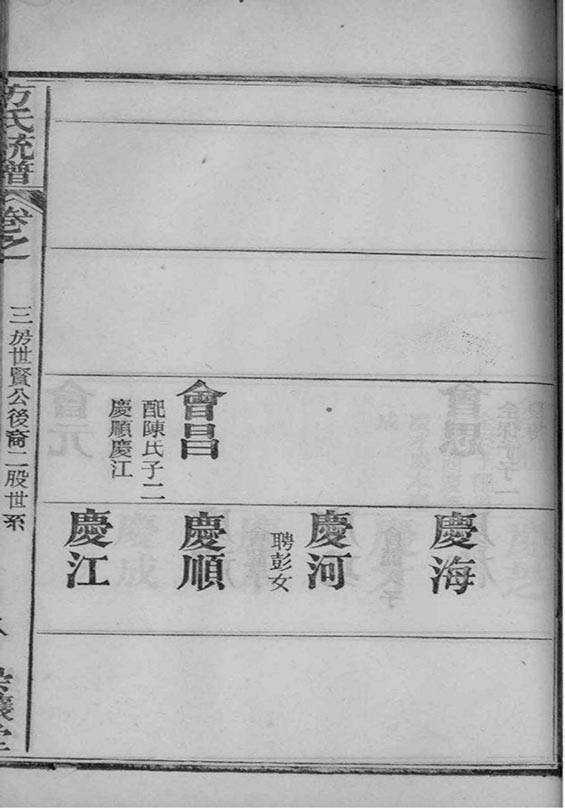 慶海
慶河
聘彭女
會昌
配陳氏子二
慶順慶江
慶順
慶江
方氏統譜
卷之
三房世賢公後裔二股世系